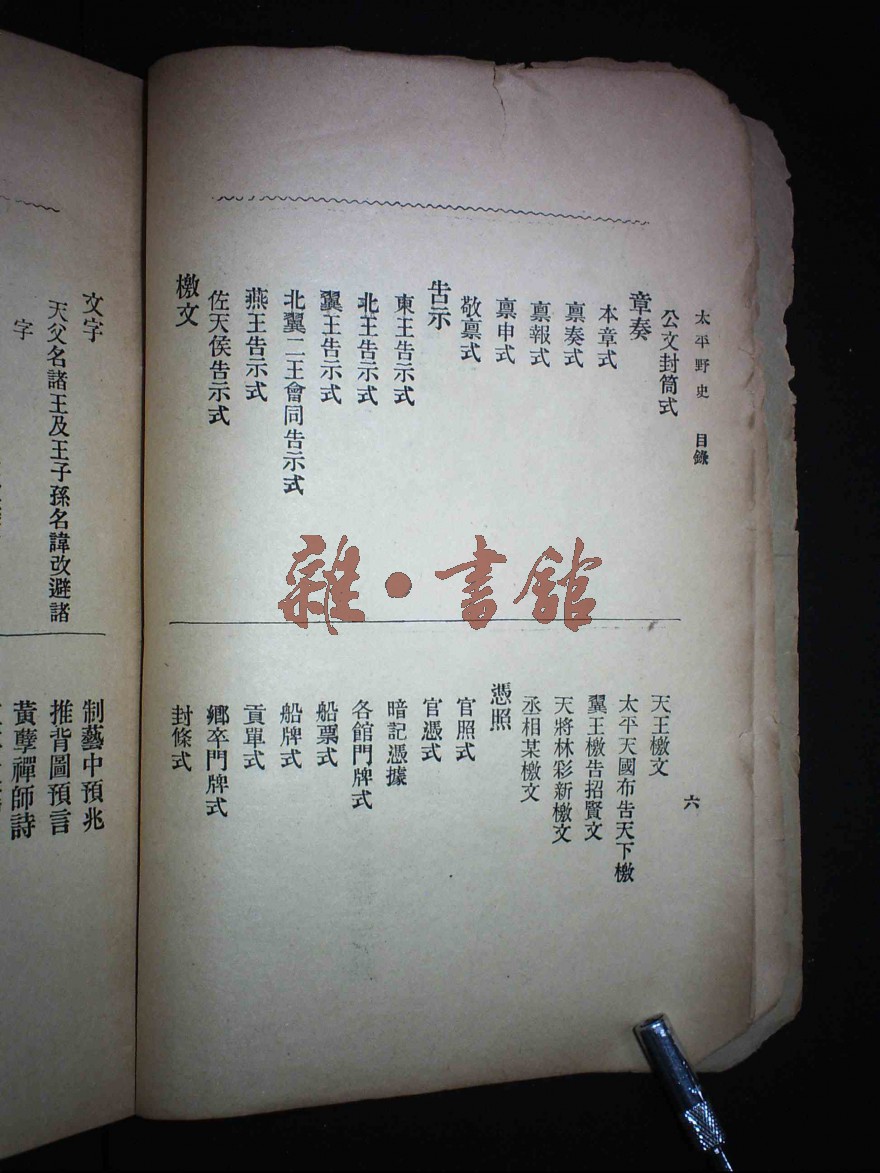 太平野史　目錄
六
公文封筒式
章奏
本章式
禀奏式
禀報式
禀申式
敬禀式
告示
東王告示式
北王告示式
翼王告示式
北翼二王會同告示式
燕王告示式
佐天侯告示式
檄文
天王檄文
太平天國布告天下檄
翼王檄告招賢文
天將林彩新檄文
丞相某檄文
憑照
官照式
官憑式
暗記憑據
各館門牌式
船票式
船牌式
貢單式
鄉卒門牌式
封條式
文字
天父名諸王及王子孫名諱改避諸
字
制藝中預兆
推背圖預言
黃孽禪師詩
雜·書舘